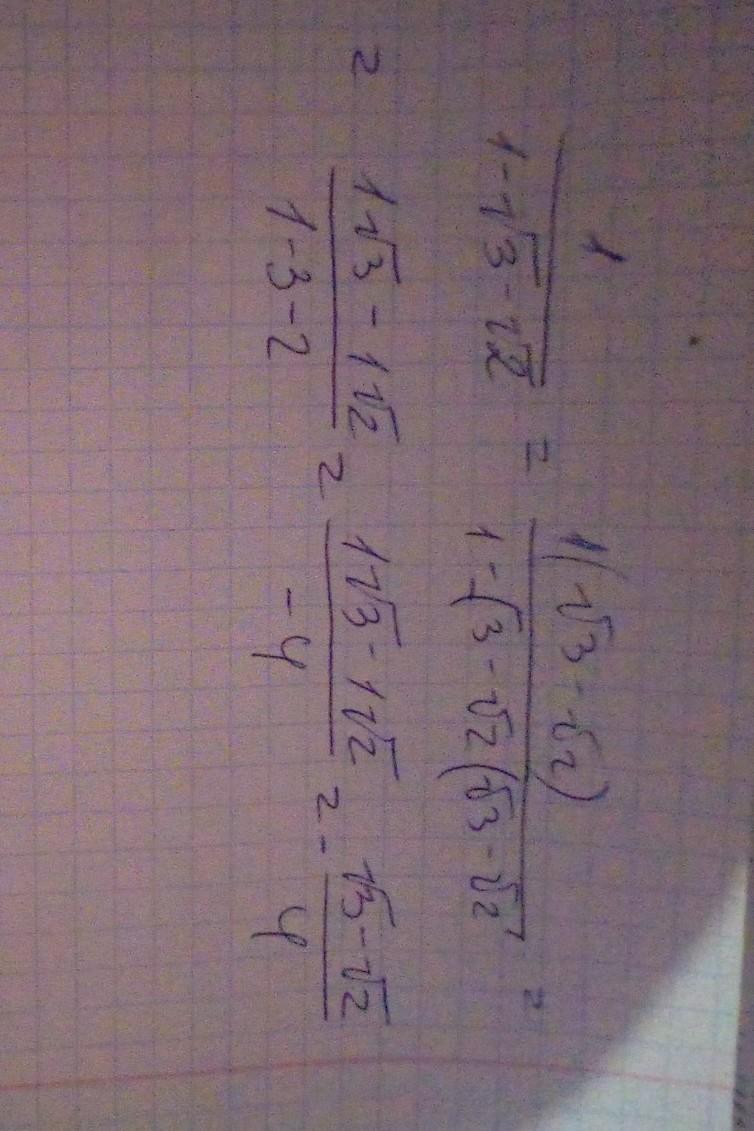 1/(1-√3-√2) = 1(√3-√2)/(1-√3-√2(√3-√2) =
= (1√3-1√2)/(1-3-2) = (1√3-1√2)/(-4) = -(√3-√2)/4